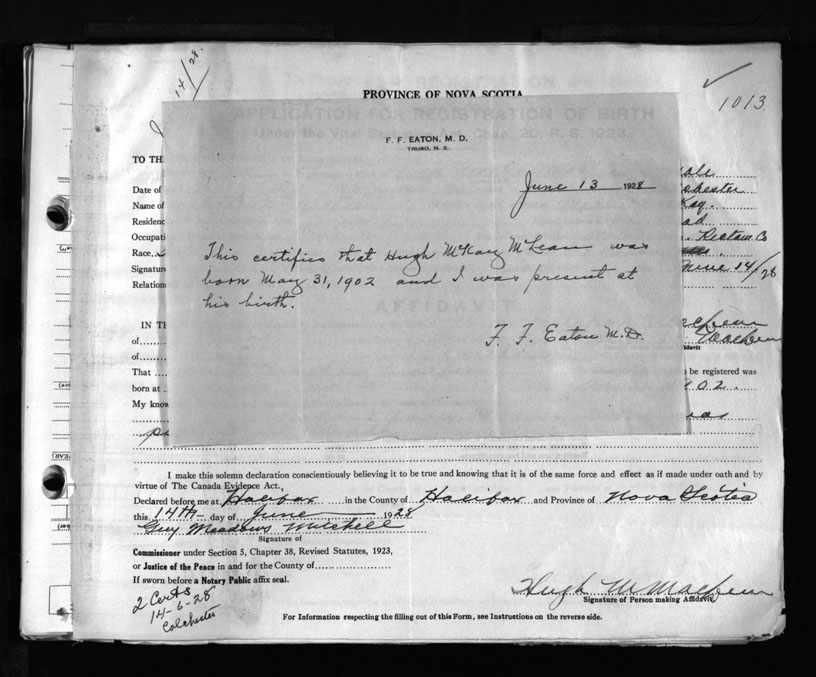 14/28.
1013
PROVINCE OF NOVA SCOTIA
APPLICATION FOR REGISTRATION OF BIRTH
F. F. EATON, M. D.
TRURO, N. S.
June 13 1928
This certifies that Hugh McKay McLean was
born May 31, 1902 and I was present at
his birth.
F. F. Eaton M.D.
TO THE
Date of
Name of
Residenc
Occupati
Race
Signatur
Relation
June 14/28
AFFIDAVIT
IN TH
of
of
davit
That
be registered was
born at
902.
My know
was
I make this solemn declaration conscientiously believing it to be true and knowing that it is of the same force and effect as if made under oath and by
virtue of The Canada Evidence Act.
Declared before me at Halifax in the County of Halifax and Province of Nova Scotia
this 14th day of June 1928
Guy Meadows Mitchell
Signature of
Commissioner under Section 5, Chapter 38, Revised Statutes, 1923,
or Justice of the Peace in and for the County of
If sworn before a Notary Public affix seal.
2 Certs
14-6-28
Colchester
Hugh M
Signature of Person making Affidavit,
For Information respecting the filling out of this Form, see Instructions on the reverse side.